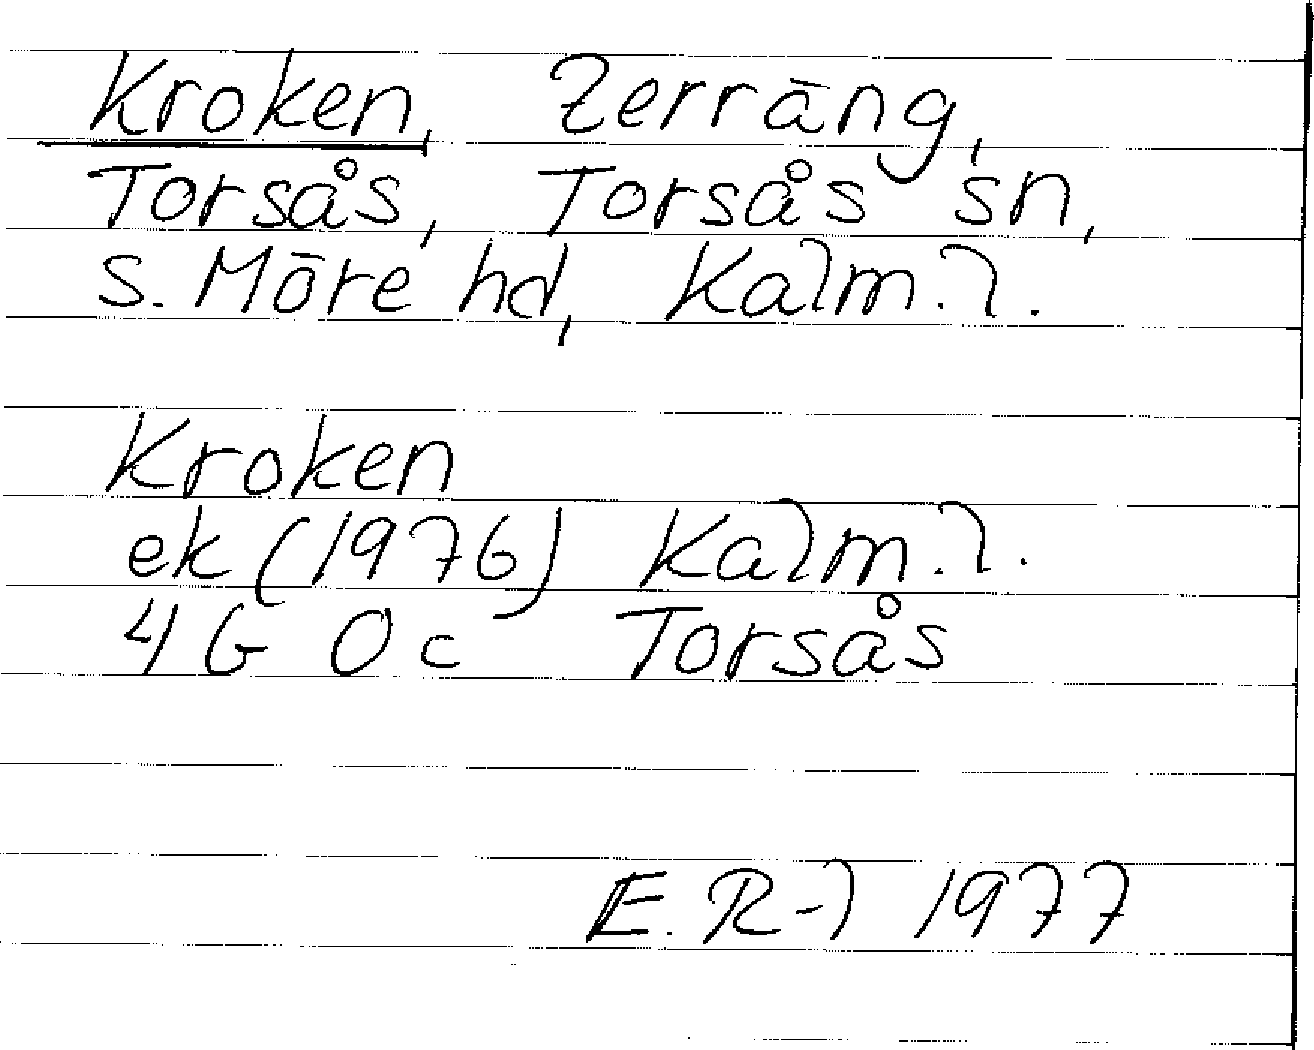 Kroken, terräng,
Torsås, Torsås sn,
S. Möre hd, Kalm. l.
Kroken
ek (1976) Kalm. l.
4G 0c Torsås
E. R-l 1977